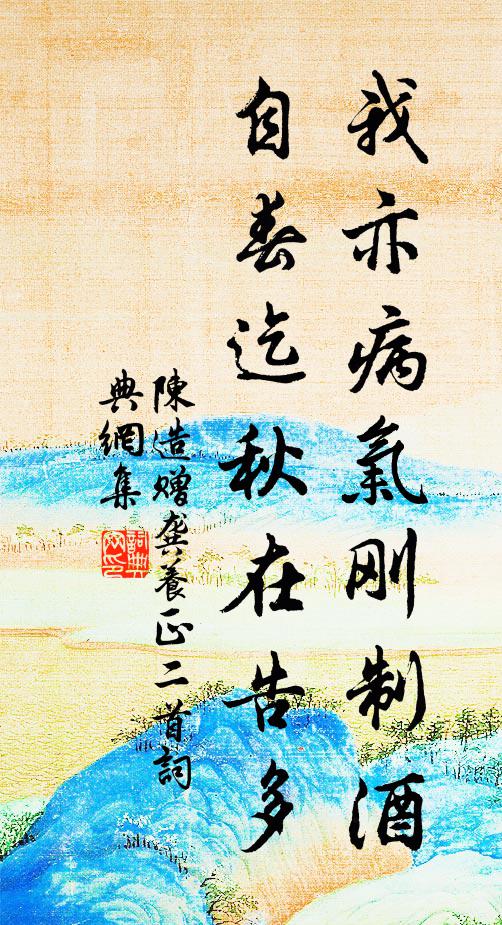 我亦病氣刚制酒
自春迄秋在告多
陳造贈龔養正二首詞
典網集